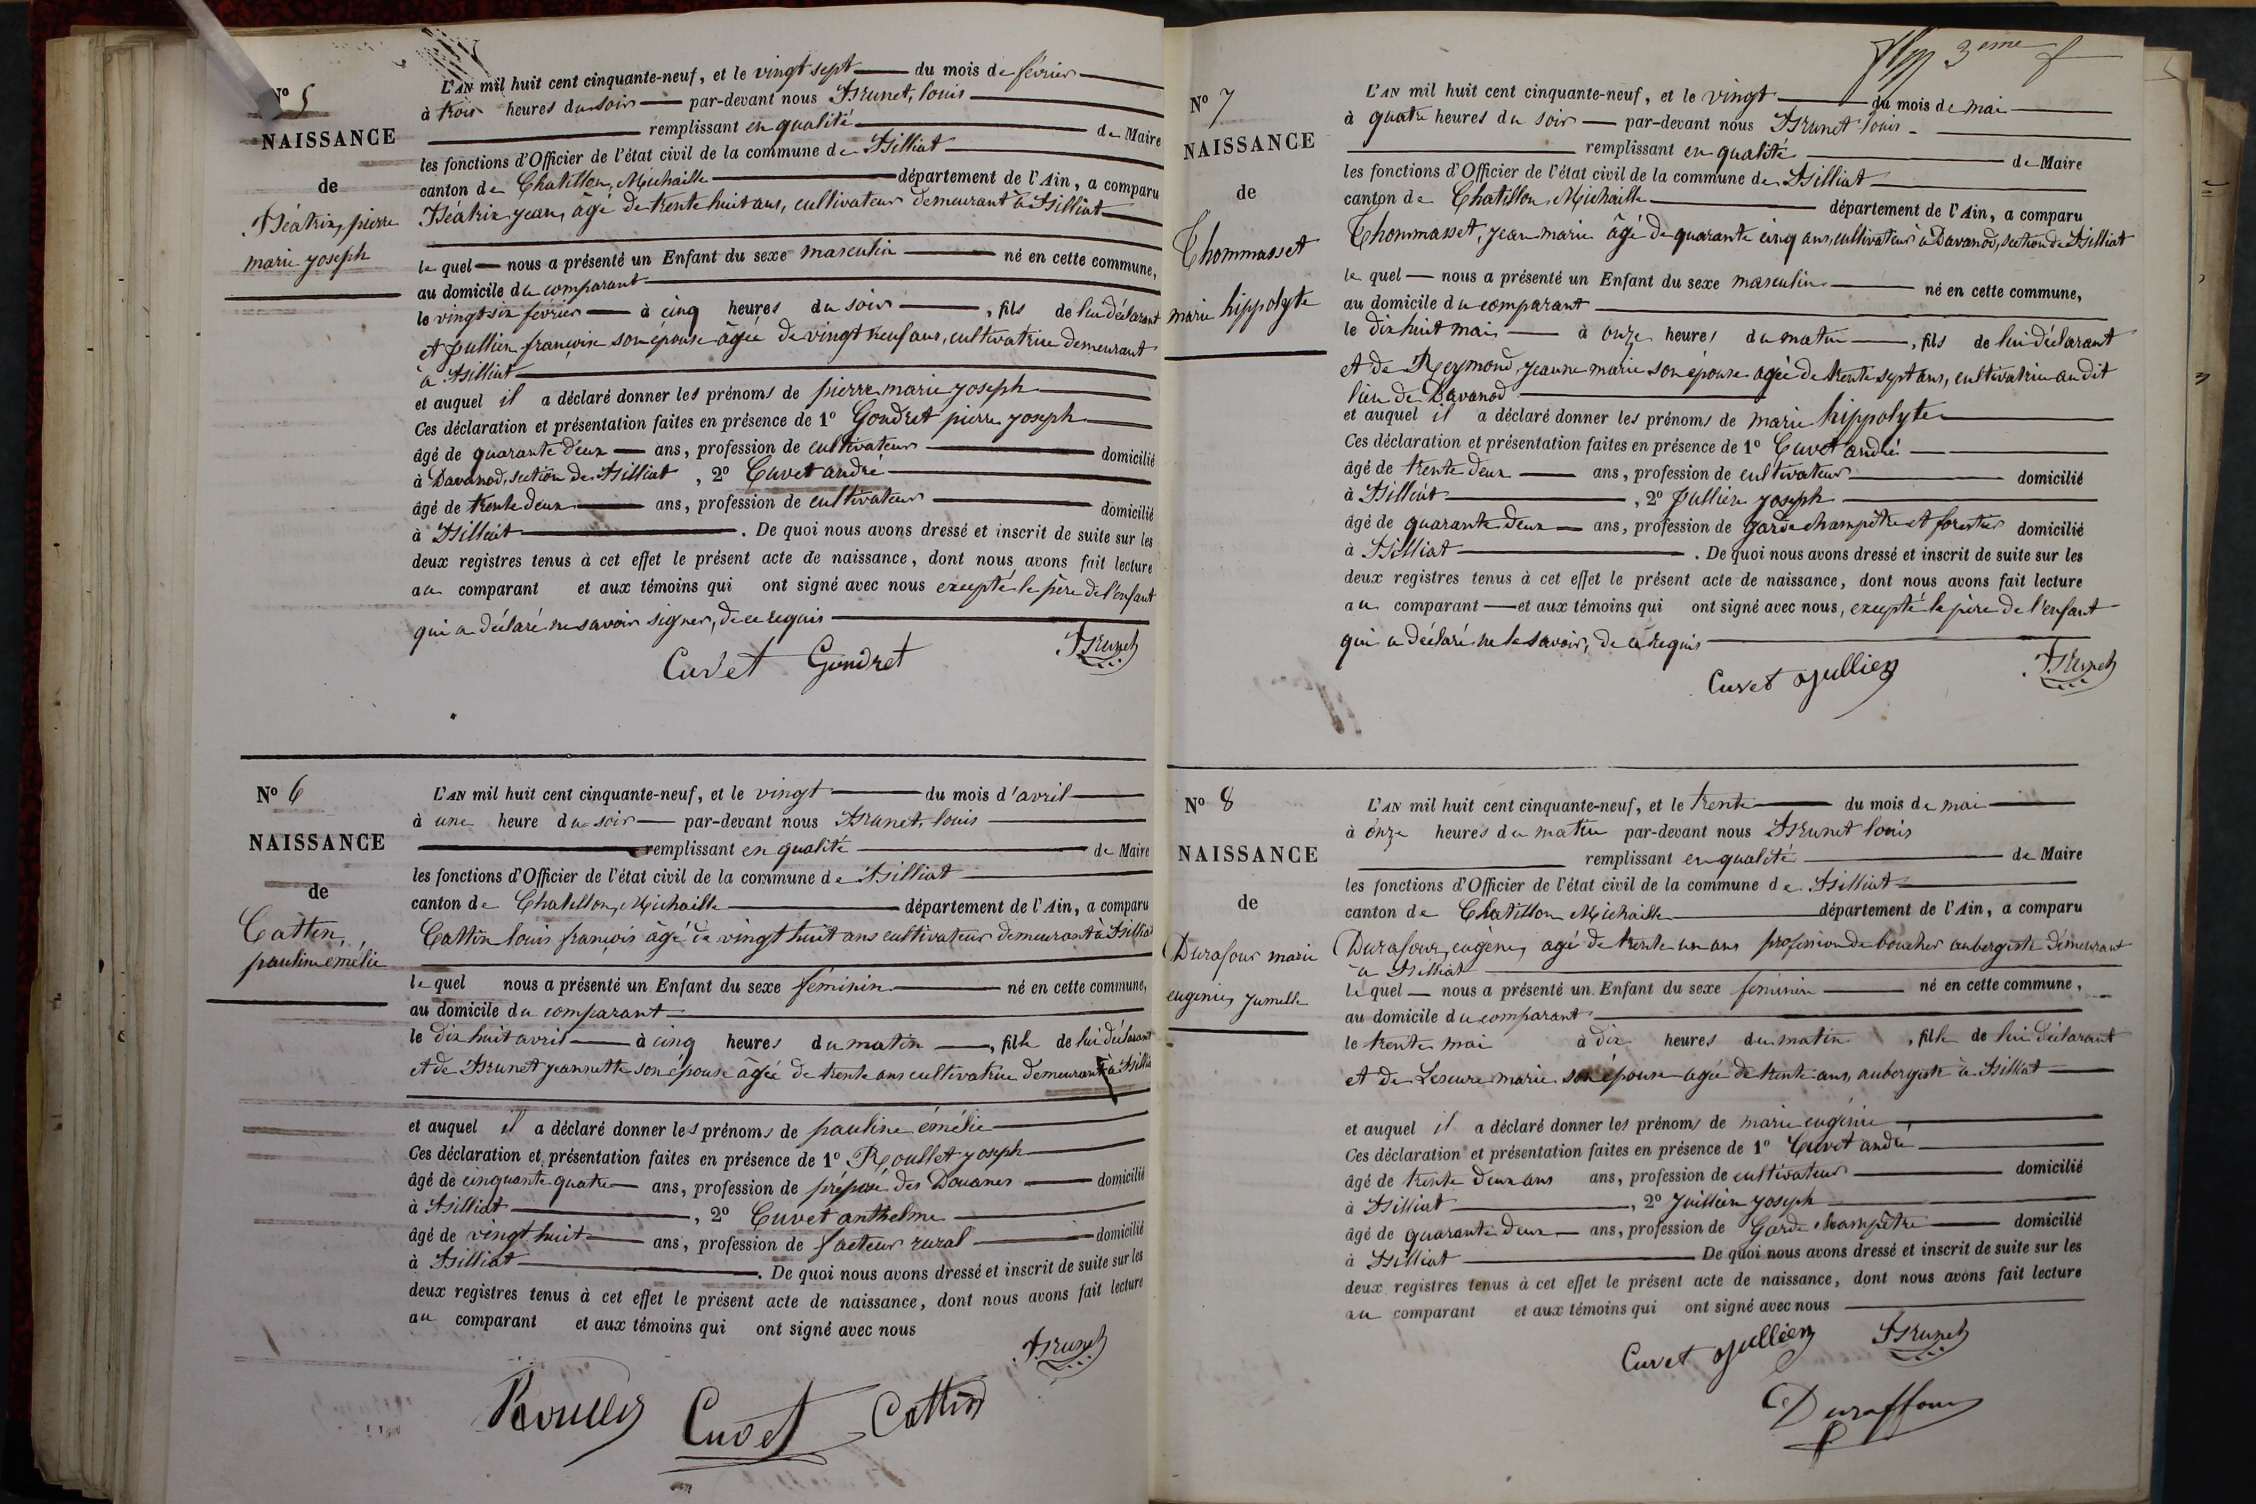 N° 5
NAISSANCE
de
Béatrix, pierre
marie joseph
L'AN mil huit cent cinquante-neuf, et le vingt sept du mois de février
à trois heures du soir par-devant nous Brunet, louis
remplissant en qualité de Maire
les fonctions d'Officier de l'état civil de la commune de Billiat
canton de Chatillon, Michaille département de l'Ain, a comparu
Béatrix jean, âgé de trente huit ans, cultivateur demeurant à Billiat
le quel nous a présenté un Enfant du sexe masculin né en cette commune,
au domicile du comparant
le vingt six février à cinq heures du soir, fils de lui déclarant
et jullien françoise son épouse âgée de vingt neuf ans, cultivatrice demeurant
à Billiat
et auquel il a déclaré donner les prénoms de pierre marie joseph
Ces déclaration et présentation faites en présence de 1° Gondret pierre joseph
âgé de quarante deux ans, profession de cultivateur domicilié
à Davanod, section de Billiat, 2° Cuvet andré
âgé de trente deux ans, profession de cultivateur domicilié
à Billiat. De quoi nous avons dressé et inscrit de suite sur les
deux registres tenus à cet effet le présent acte de naissance, dont nous avons fait lecture
au comparant et aux témoins qui ont signé avec nous excepté le père de l'enfant
qui a déclaré ne savoir signer, de ce requis
Cuvet Gondret Brunet
N° 6
NAISSANCE
de
Cattin,
pauline émélie
L'AN mil huit cent cinquante-neuf, et le vingt du mois d'avril
à une heure du soir par-devant nous Brunet, louis
remplissant en qualité de Maire
les fonctions d'Officier de l'état civil de la commune de Billiat
canton de Chatillon, Michaille département de l'Ain, a comparu
Cattin louis françois âgé de vingt huit ans cultivateur demeurant à Billiat
le quel nous a présenté un Enfant du sexe féminin né en cette commune,
au domicile du comparant
le dix huit avril à cinq heures du matin, fille de lui déclarant
et de Brunet jeannette son épouse âgée de trente ans cultivatrice demeurant à Billiat
et auquel il a déclaré donner les prénoms de pauline émélie
Ces déclaration et présentation faites en présence de 1° Roullet joseph
âgé de cinquante quatre ans, profession de préposé des Douanes domicilié
à Billiat, 2° Cuvet anthelme
âgé de vingt huit ans, profession de facteur rural domicilié
à Billiat. De quoi nous avons dressé et inscrit de suite sur les
deux registres tenus à cet effet le présent acte de naissance, dont nous avons fait lecture
au comparant et aux témoins qui ont signé avec nous
Brunet
Roullet Cuvet Cattin
3eme f
N° 7
NAISSANCE
de
Thommasset
marie hippolyte
L'AN mil huit cent cinquante-neuf, et le vingt du mois de mai
à quatre heures du soir par-devant nous Brunet louis
remplissant en qualité de Maire
les fonctions d'Officier de l'état civil de la commune de Billiat
canton de Chatillon, Michaille département de l'Ain, a comparu
Thommasset, jean marie âgé de quarante cinq ans, cultivateur à Davanod, section de Billiat
le quel nous a présenté un Enfant du sexe masculin né en cette commune,
au domicile du comparant
le dix huit mai à onze heures du matin, fils de lui déclarant
et de Reymond, jeanne marie son épouse agée de trente sept ans, cultivatrice au dit
lieu de Davanod
et auquel il a déclaré donner les prénoms de marie hippolyte
Ces déclaration et présentation faites en présence de 1° Cuvet andré
âgé de trente deux ans, profession de cultivateur domicilié
à Billiat, 2° jullien joseph
âgé de quarante deux ans, profession de garde champêtre et forestier domicilié
à Billiat. De quoi nous avons dressé et inscrit de suite sur les
deux registres tenus à cet effet le présent acte de naissance, dont nous avons fait lecture
au comparant et aux témoins qui ont signé avec nous, excepté le père de l'enfant
qui a déclaré ne le savoir, de ce requis
Cuvet jullien Brunet
N° 8
NAISSANCE
de
Durafour marie
eugénie, jumelle
L'AN mil huit cent cinquante-neuf, et le trente du mois de mai
à onze heures du matin par-devant nous Brunet louis
remplissant en qualité de Maire
les fonctions d'Officier de l'état civil de la commune de Billiat
canton de Chatillon Michaille département de l'Ain, a comparu
Durafour, eugène, agé de trente un ans profession de boucher aubergiste demeurant
à Billiat
le quel nous a présenté un Enfant du sexe féminin né en cette commune,
au domicile du comparant
le trente mai à dix heures du matin, fille de lui déclarant
et de Lescure marie son épouse agée de trente ans, aubergiste à Billiat
et auquel il a déclaré donner les prénoms de marie eugénie
Ces déclaration et présentation faites en présence de 1° Cuvet andré
âgé de trente deux ans ans, profession de cultivateur domicilié
à Billiat, 2° Juillien joseph
âgé de quarante deux ans, profession de Garde champêtre domicilié
à Billiat De quoi nous avons dressé et inscrit de suite sur les
deux registres tenus à cet effet le présent acte de naissance, dont nous avons fait lecture
au comparant et aux témoins qui ont signé avec nous
Cuvet jullien Brunet
Duraffour